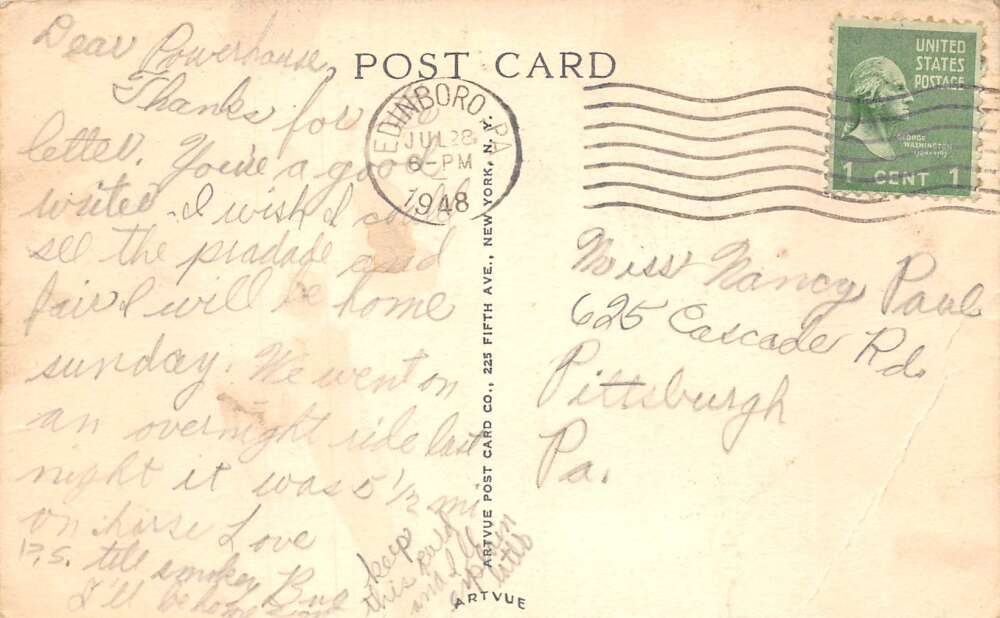 Dear Powerhouse,
Thanks for
letter. You're a good
writer. I wish I could
see the pradade and
fair I will be home
sunday. We went on
an overnight ride last
night it was 5 1/2 mi
on horse Love
P.S. tell smokey Bug
I'll be home
keep
this card
and I'll
explain
later
POST CARD
EDINBORO, PA
JUL 28
6-PM
1948
UNITED
STATES
POSTAGE
GEORGE
WASHINGTON
1 CENT 1
Miss Nancy Paul
625 Cascade Rd.
Pittsburgh
Pa.
ARTVUE POST CARD CO., 225 FIFTH AVE., NEW YORK, N.Y.
ARTVUE